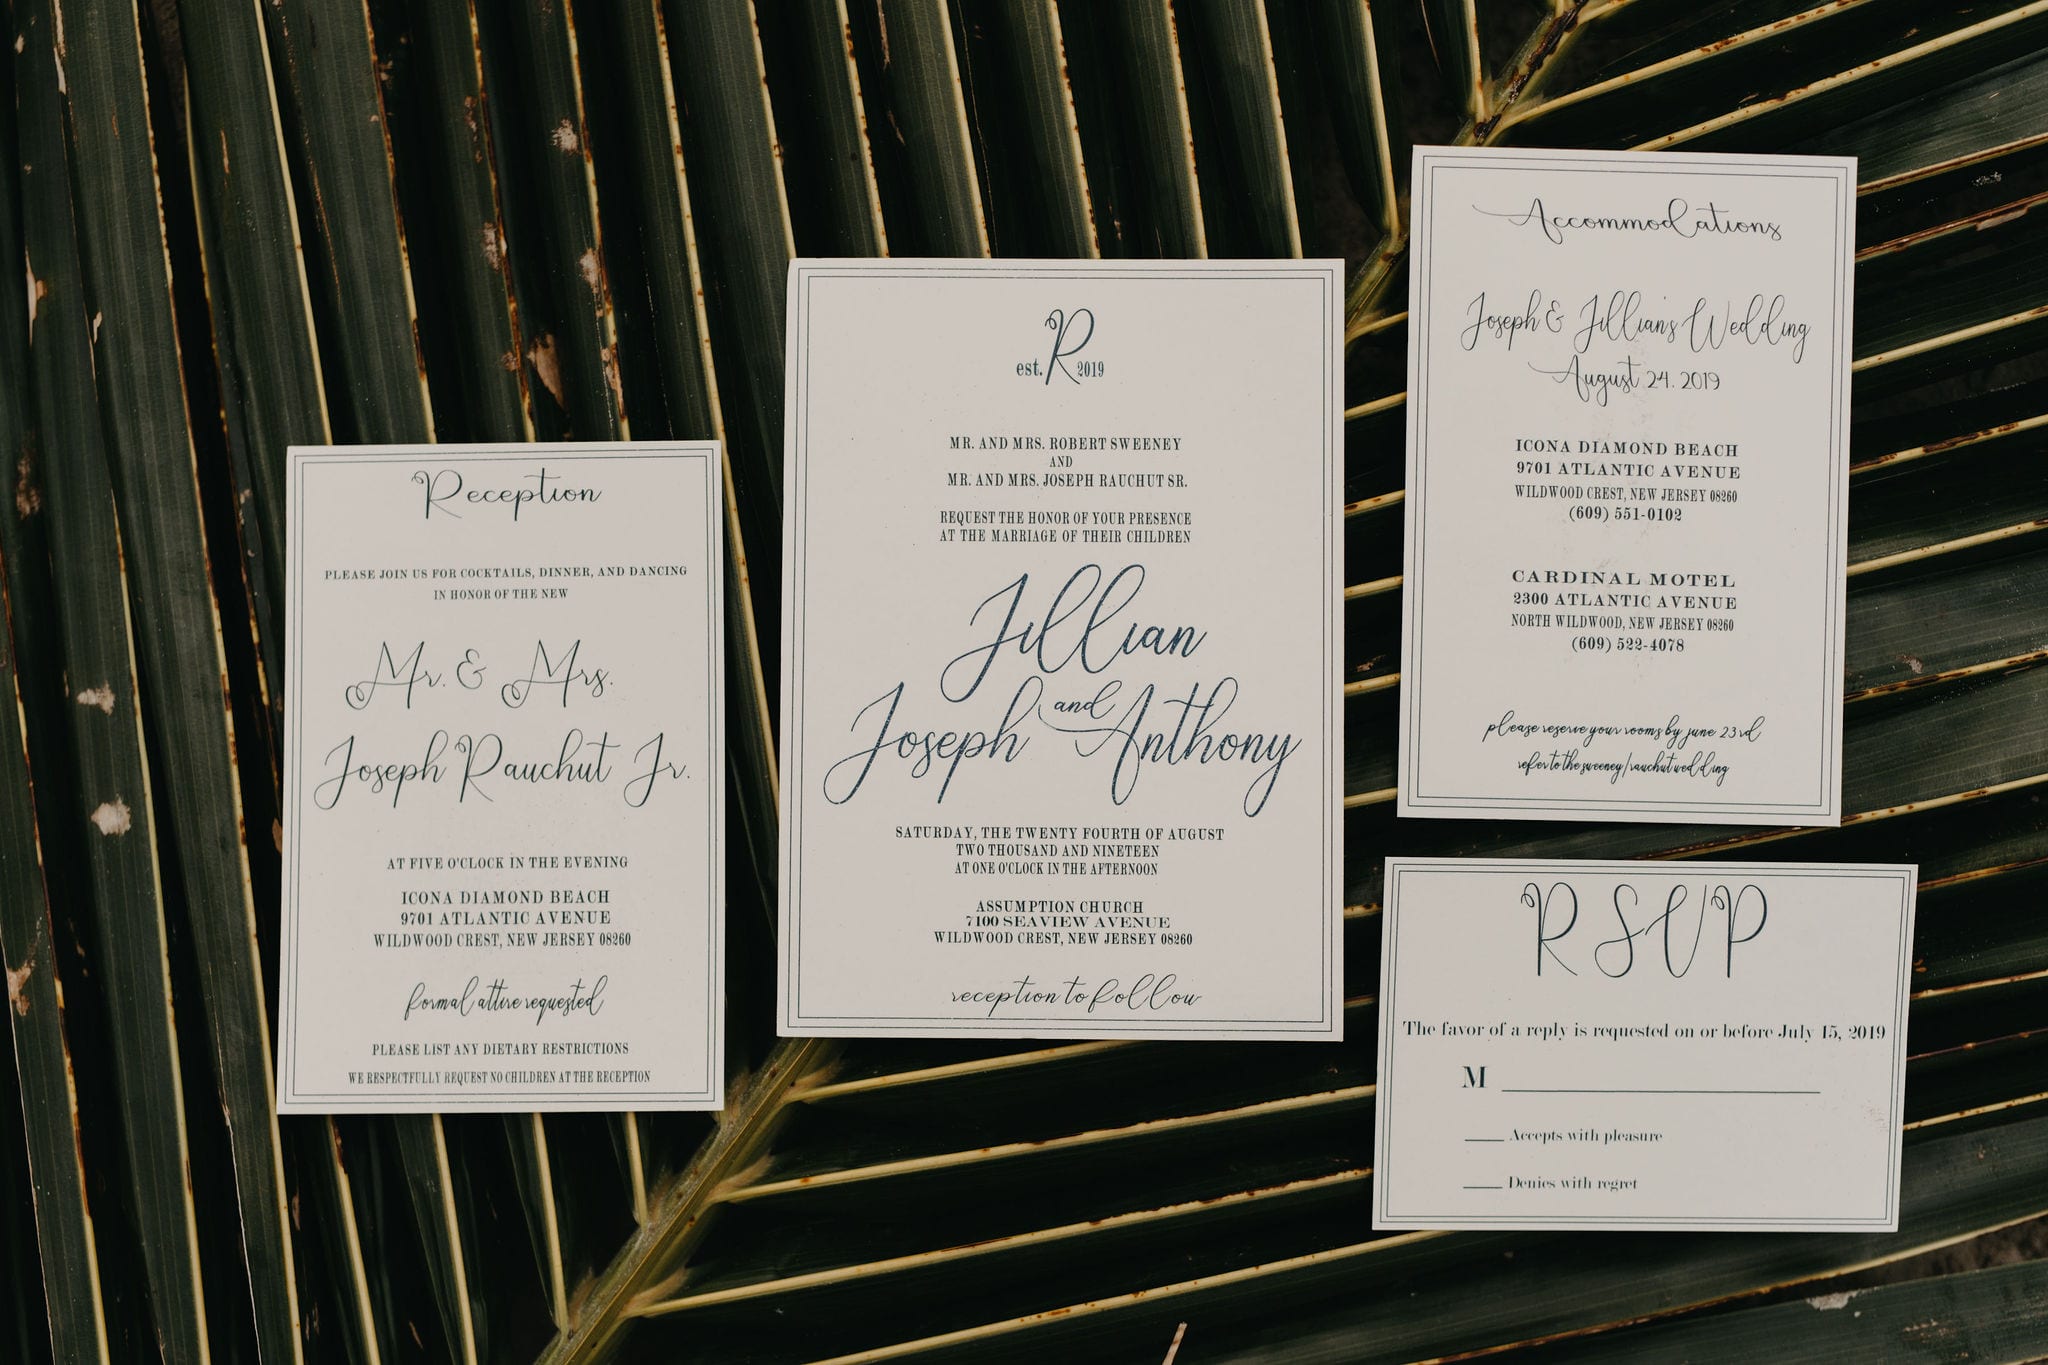 Reception
PLEASE JOIN US FOR COCKTAILS, DINNER, AND DANCING
IN HONOR OF THE NEW
Mr. & Mrs.
Joseph Rauchut Jr.
AT FIVE O'CLOCK IN THE EVENING
ICONA DIAMOND BEACH
9701 ATLANTIC AVENUE
WILDWOOD CREST, NEW JERSEY 08260
formal attire requested
PLEASE LIST ANY DIETARY RESTRICTIONS
WE RESPECTFULLY REQUEST NO CHILDREN AT THE RECEPTION
est. R 2019
MR. AND MRS. ROBERT SWEENEY
AND
MR. AND MRS. JOSEPH RAUCHUT SR.
REQUEST THE HONOR OF YOUR PRESENCE
AT THE MARRIAGE OF THEIR CHILDREN
Jillian
and
Joseph Anthony
SATURDAY, THE TWENTY FOURTH OF AUGUST
TWO THOUSAND AND NINETEEN
AT ONE O'CLOCK IN THE AFTERNOON
ASSUMPTION CHURCH
7100 SEAVIEW AVENUE
WILDWOOD CREST, NEW JERSEY 08260
reception to follow
Accommodations
Joseph & Jillian's Wedding
August 24, 2019
ICONA DIAMOND BEACH
9701 ATLANTIC AVENUE
WILDWOOD CREST, NEW JERSEY 08260
(609) 551-0102
CARDINAL MOTEL
2300 ATLANTIC AVENUE
NORTH WILDWOOD, NEW JERSEY 08260
(609) 522-4078
please reserve your rooms by june 23rd
refer to the sweeney/rauchut wedding
RSVP
The favor of a reply is requested on or before July 15, 2019
M
Accepts with pleasure
Denies with regret